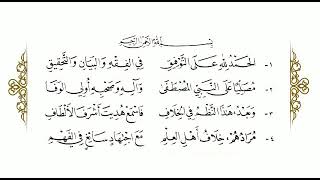 بسم الله الرحمن الرحيم
١- الحمد لله على التوفيق في الفقه والبيان والتحقيق
٢- مصليا على النبي المصطفى وآله وصحبه أولي الوفا
٣- وبعد، هذا النظم في الخلاف فاسمع هديت أشرف الألطاف
٤- مرادهم، خلاف أهل العلم مع اجتهاد سايغ في الفهم